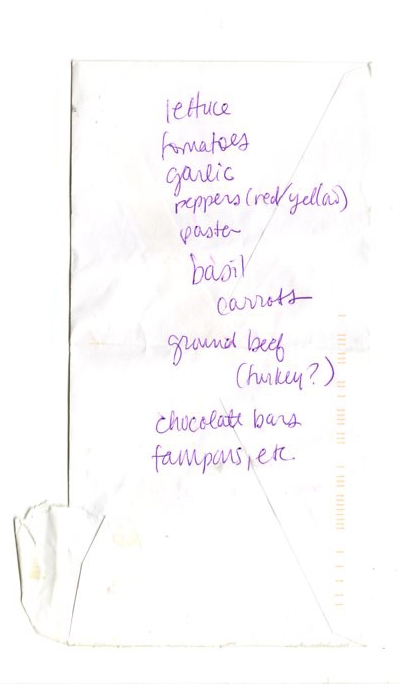 lettuce
tomatoes
garlic
peppers (red/yellow)
pasta
basil
carrots
ground beef
(turkey?)
chocolate bars
tampons, etc.